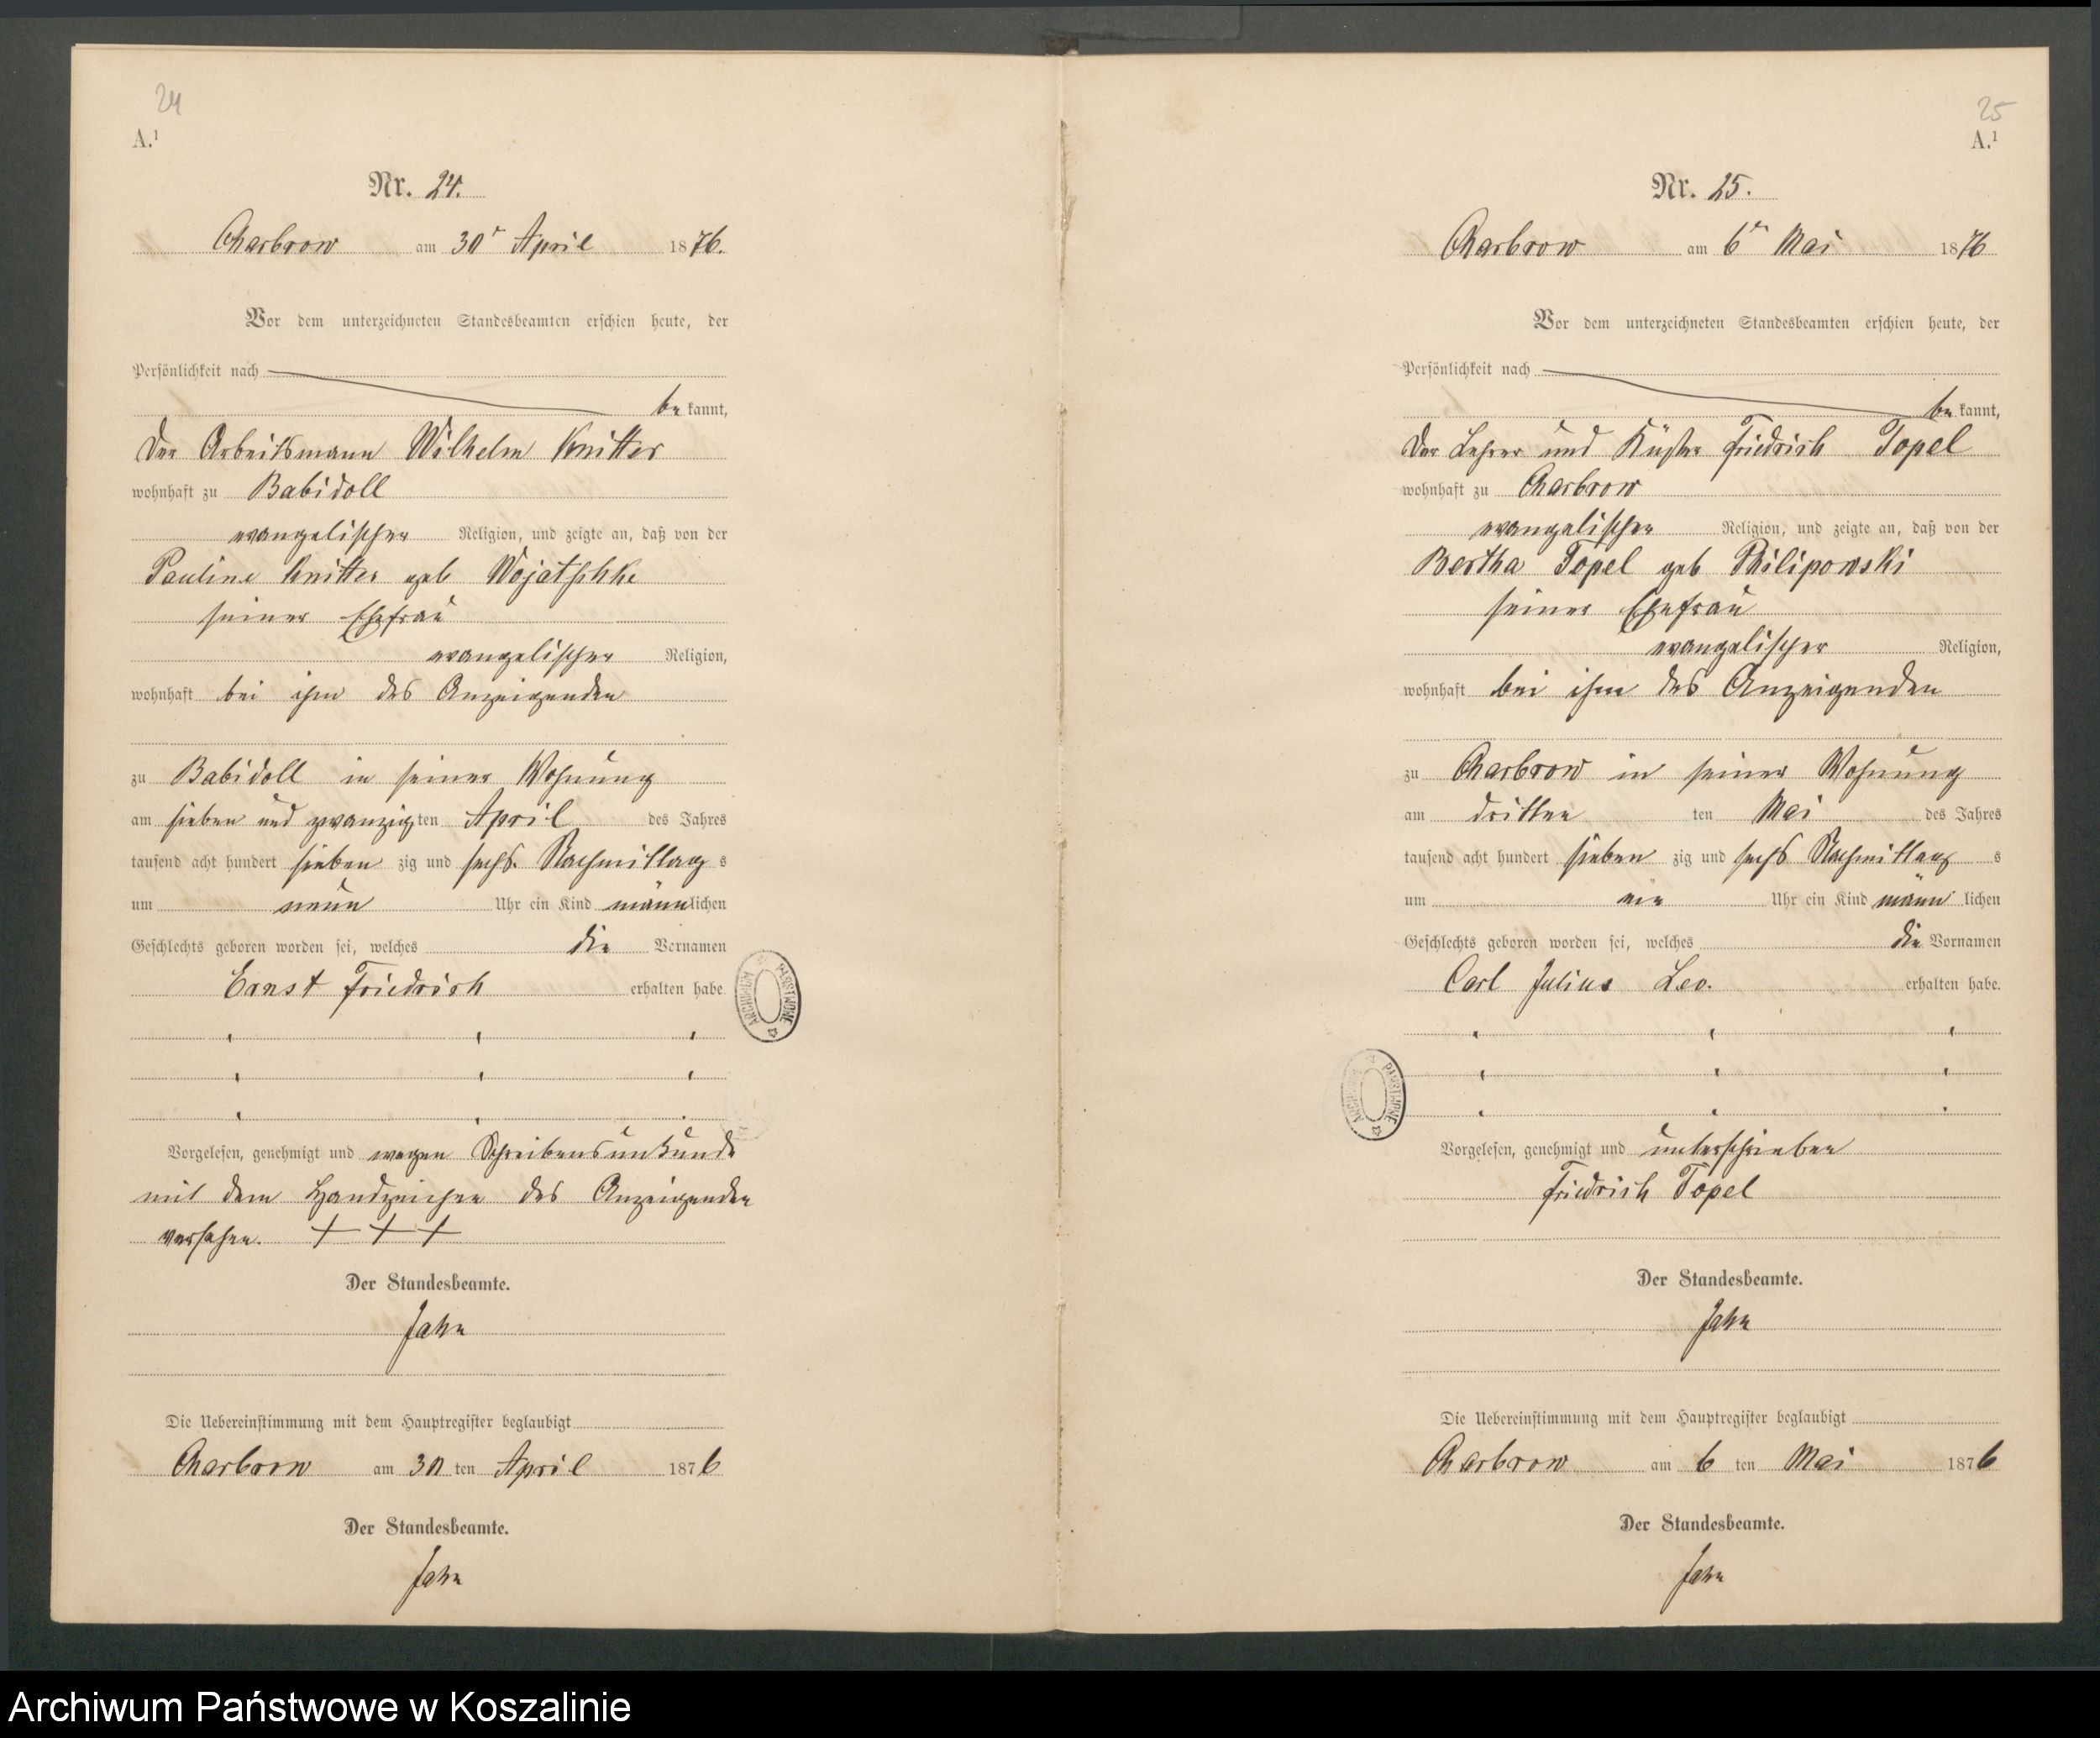 24
A.¹
Nr. 24.
Charbrow am 30ᵗ April 1876.
Vor dem unterzeichneten Standesbeamten erschien heute, der
Persönlichkeit nach
be kannt,
Der Arbeitsmann Wilhelm Knitter
wohnhaft zu Babidoll
evangelischer Religion, und zeigte an, daß von der
Pauline Knitter geb Wojatschke
seiner Ehefrau
evangelischer Religion,
wohnhaft bei ihm des Anzeigenden
zu Babidoll in seiner Wohnung
am sieben und zwanzigten April des Jahres
tausend acht hundert sieben zig und sechs. Nachmittag s
um neun Uhr ein Kind männlichen
Geschlechts geboren worden sei, welches die Vornamen
Ernst Friedrich erhalten habe.
Vorgelesen, genehmigt und wegen Schreibensunkunde
mit dem Handzeichen des Anzeigenden
versehen. + + +
Der Standesbeamte.
Jahn
Die Uebereinstimmung mit dem Hauptregister beglaubigt
Charbrow am 30 ten April 1876
Der Standesbeamte.
Jahn
ARCHIWUM PAŃSTWOWE
25
A.¹
Nr. 25.
Charbrow am 6ten Mai 1876
Vor dem unterzeichneten Standesbeamten erschien heute, der
Persönlichkeit nach
be kannt,
Der Lehrer und Küster Friedrich Topel
wohnhaft zu Charbrow
evangelischer Religion, und zeigte an, daß von der
Bertha Topel geb Philipowski
seiner Ehefrau
evangelischer Religion,
wohnhaft bei ihm des Anzeigenden
zu Charbrow in seiner Wohnung
am dritten ten Mai des Jahres
tausend acht hundert sieben zig und sechs Nachmittag s
um ein Uhr ein Kind männ lichen
Geschlechts geboren worden sei, welches die Vornamen
Carl Julius Leo. erhalten habe.
Vorgelesen, genehmigt und unterschrieben
Friedrich Topel
Der Standesbeamte.
Jahn
Die Uebereinstimmung mit dem Hauptregister beglaubigt
Charbrow am 6 ten Mai 1876
Der Standesbeamte.
Jahn
ARCHIWUM PAŃSTWOWE
Archiwum Państwowe w Koszalinie